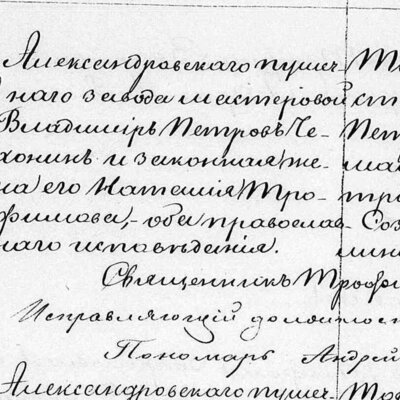 Александровскаго пушеч-
наго завода мастеровой
Владиміръ Петровъ Че-
хонинъ и законная же-
на его Наталія Тро-
фимова,- оба православ-
наго исповѣданія.
Священникъ Троф
Исправляющій должност
Пономарь Андрей
Александровскаго пушеч-